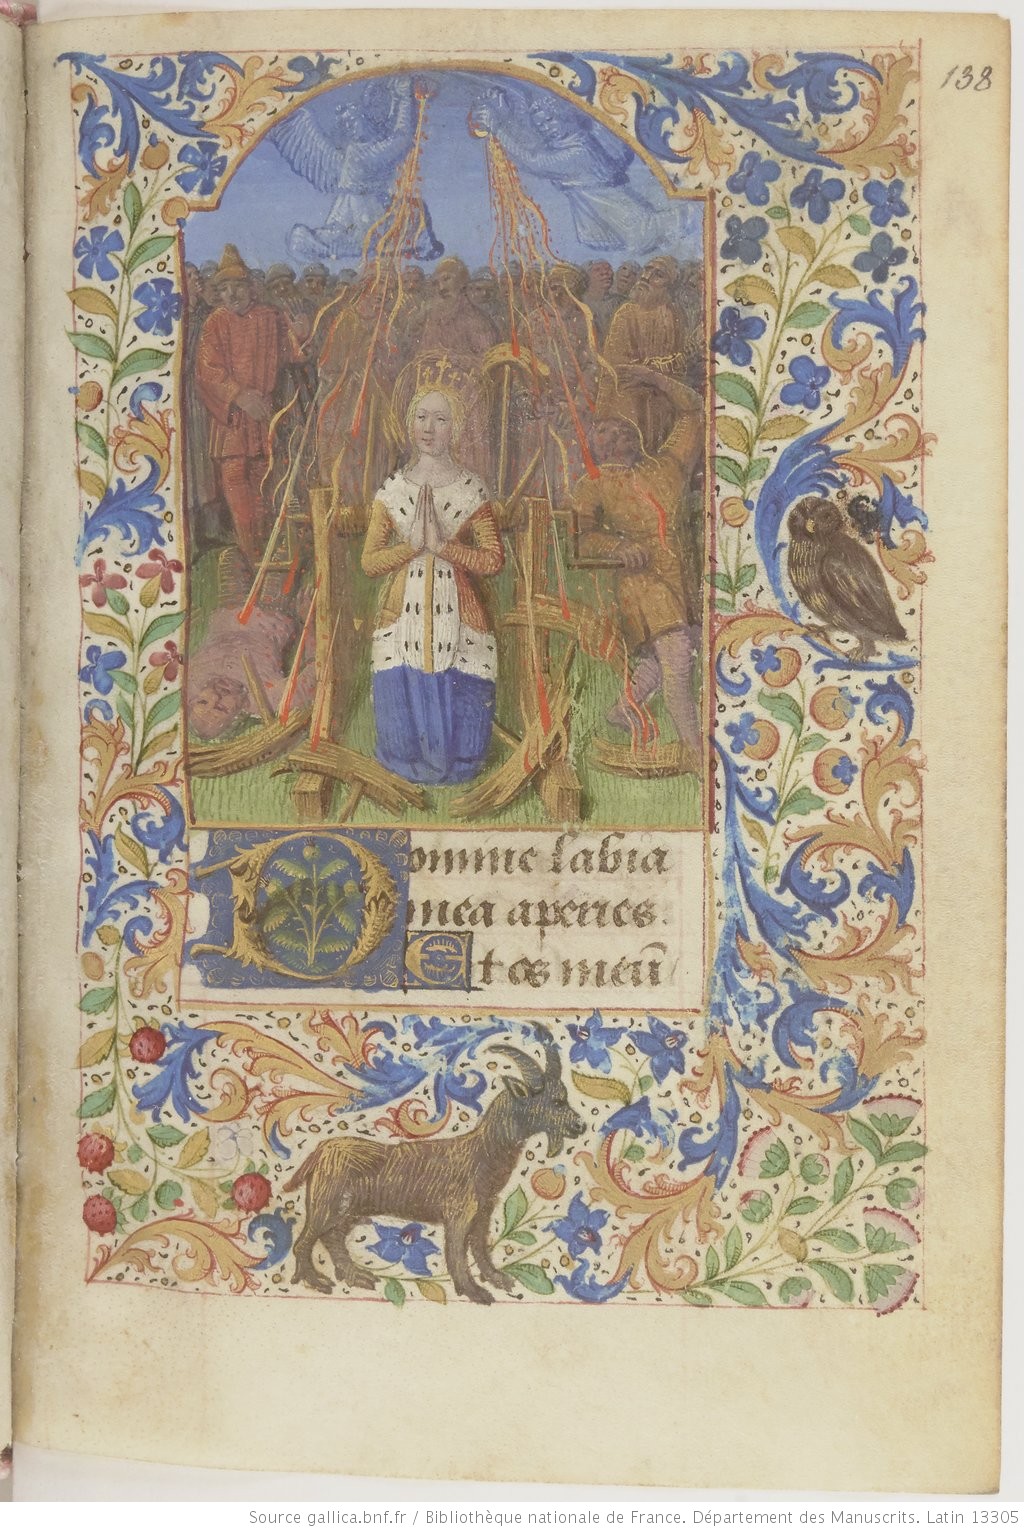 138
Domine labia
mea aperies.
Et os meũ
Source gallica.bnf.fr / Bibliothèque nationale de France. Département des Manuscrits. Latin 13305